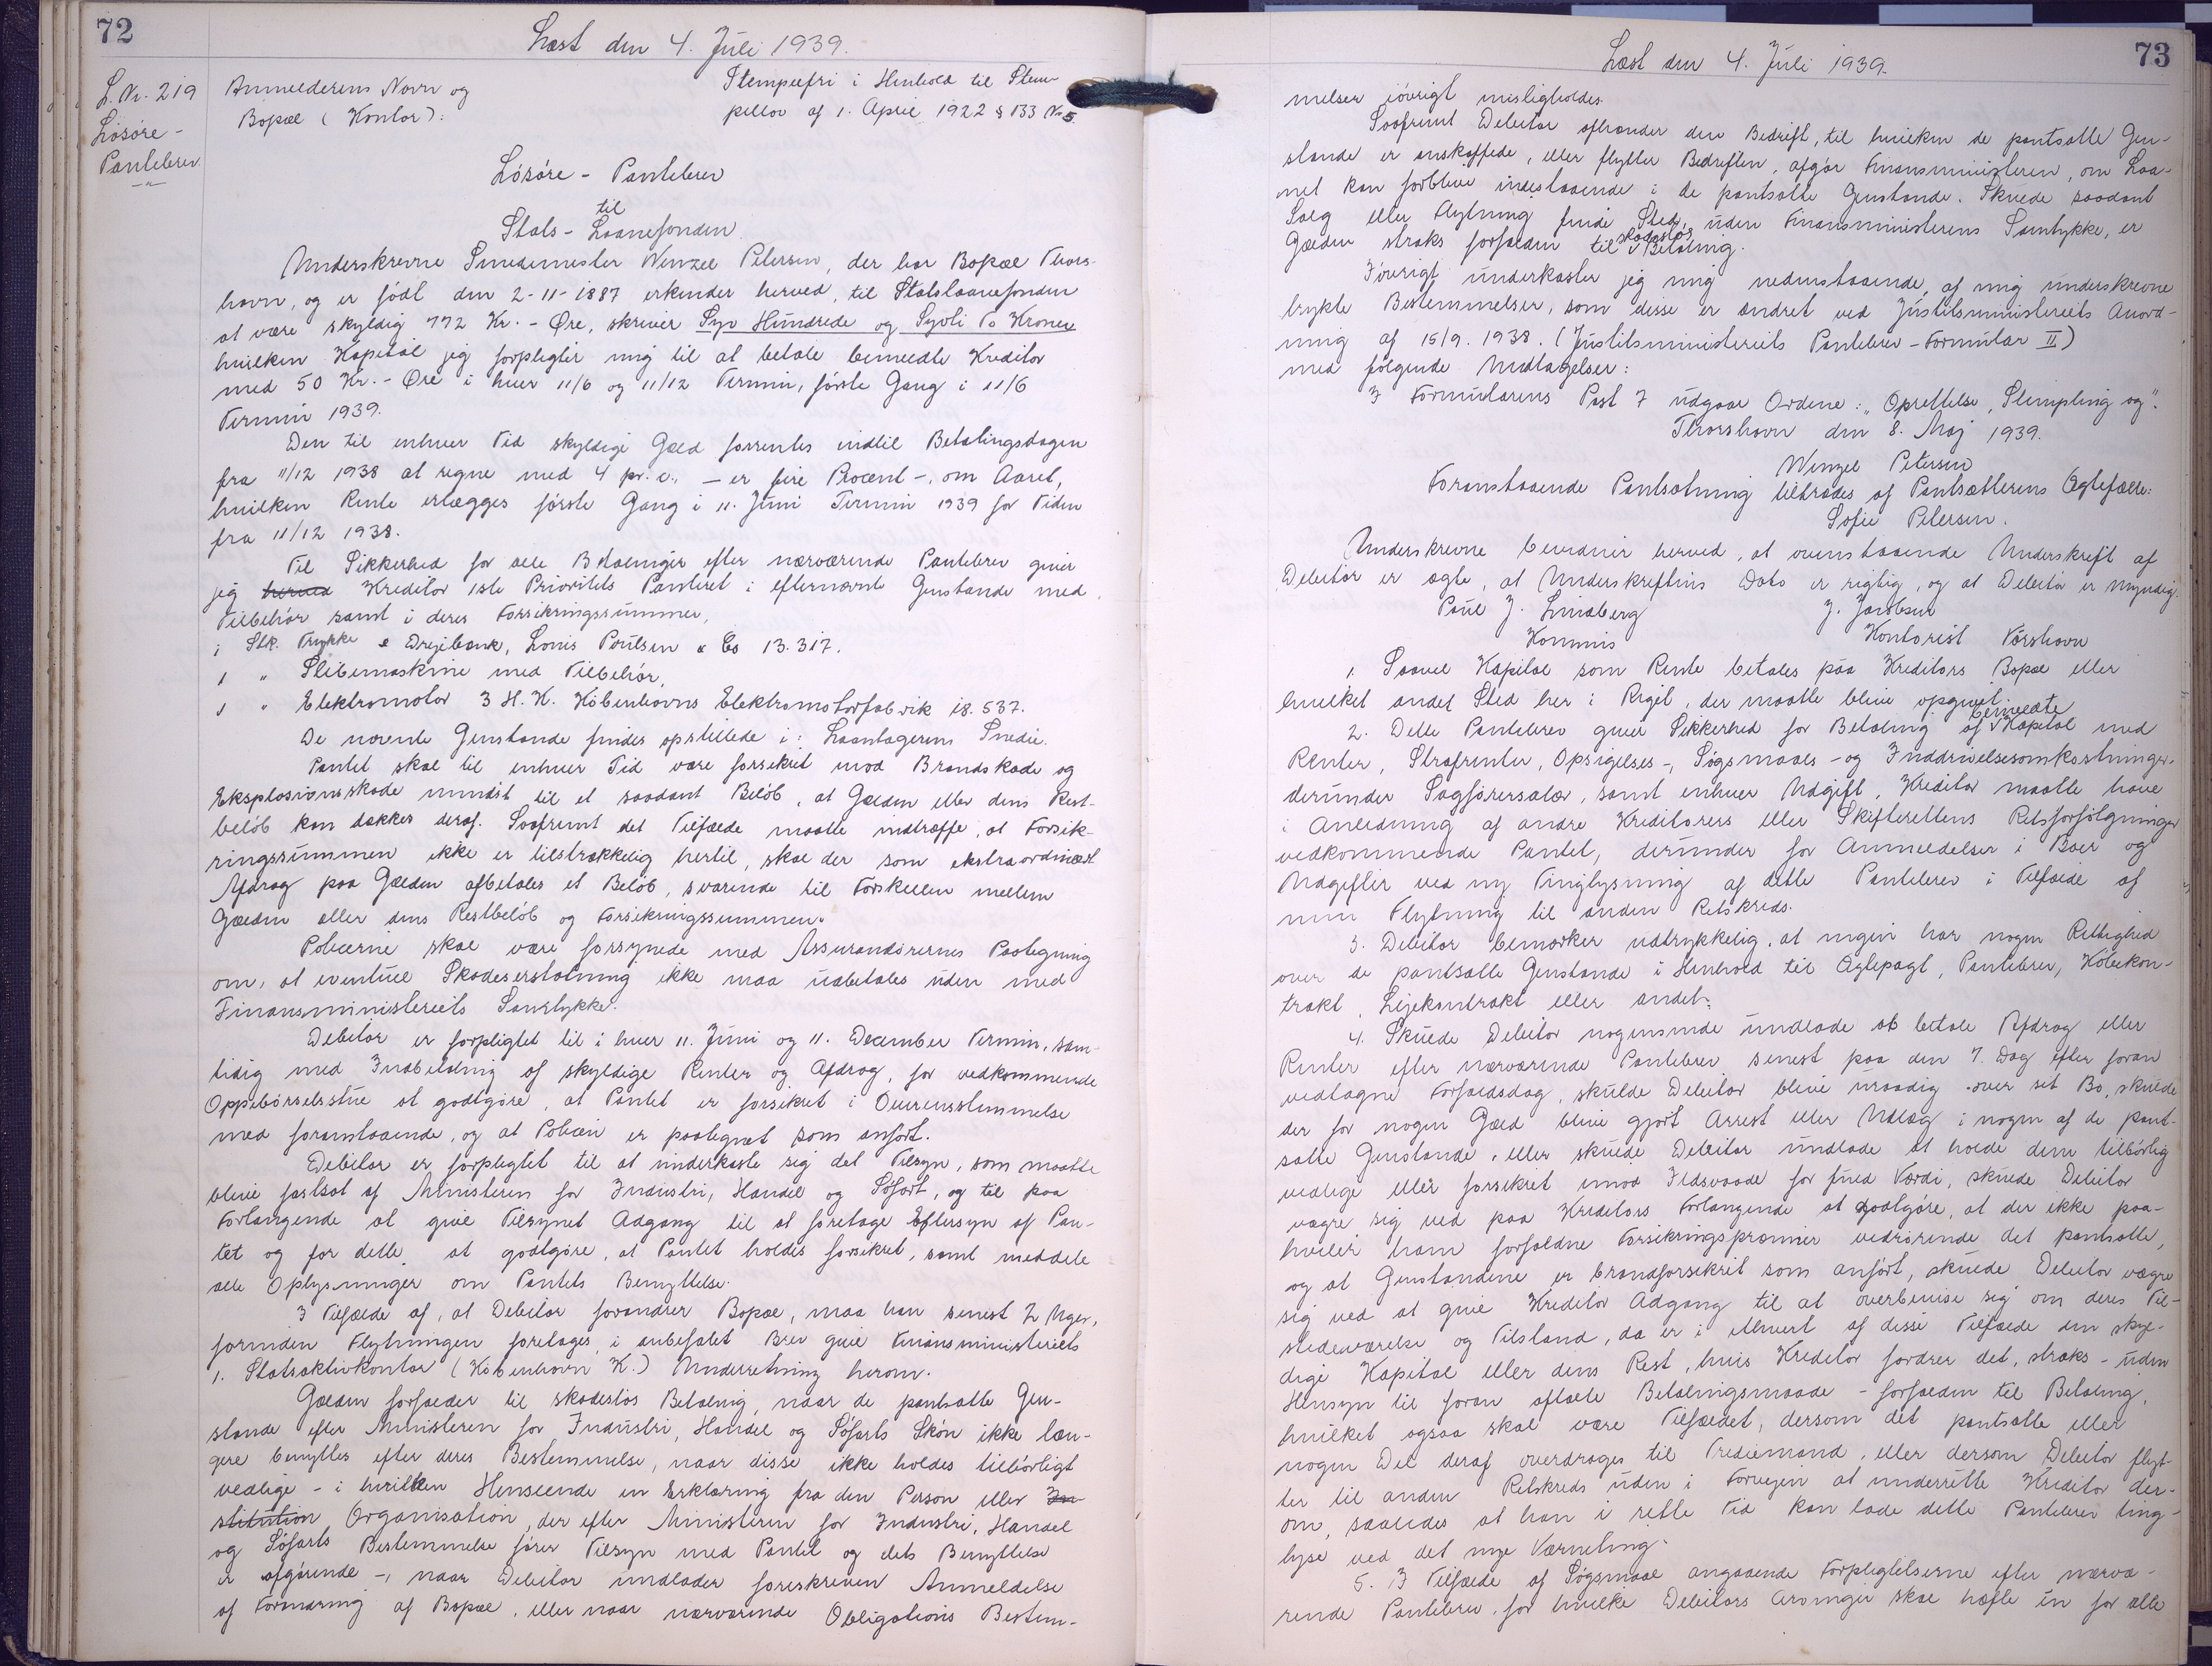 72
Læst den 4. Juli 1939.
L. Nr. 219
Løsøre-
Pantebrev.
Anmelderens Navn og
Bopæl (Kontor):
Stempelfri i Henhold til Stem-
pellov af 1. April 1922 § 133 Nr 5.
Løsøre - Pantebrev
til
Stats - Laanefonden
Underskrevne Smedemester Wenzel Petersen, der har Bopæl Thors-
havn, og er født den 2-11-1887 erkender herved, til Statslaanefonden
at være skyldig 772 Kr. - Øre, skriver Syv Hundrede og Syvti To Kroner
hvilken Kapital jeg forpligter mig til at betale bemeldte Kreditor
med 50 Kr. - Øre i hver 11/6 og 11/12 Termin, første Gang i 11/6
Termin 1939.
Den til enhver Tid skyldige Gæld forrentes indtil Betalingsdagen
fra 11/12 1938 at regne med 4 pr. c., - er fire Procent -, om Aaret,
hvilken Rente erlægges første Gang i 11. Juni Termin 1939 for Tiden
fra 11/12 1938.
Til Sikkerhed for alle Betalinger efter nærværende Pantebrev giver
jeg herved Kreditor 1ste Prioritets Panteret i efternævnte Genstande med
Tilbehør samt i deres Forsikringssummer,
1 Stk. Trykke & Drejebænk, Louis Poulsen & Co 13.317.
1 " Slibemaskine med Tilbehør,
1 " Elektromotor 3 H.K. Københavns Elektromotorfabrik 18.537.
De nævnte Genstande findes opstillede i: Laantagerens Smedie.
Pantet skal til enhver Tid være forsikret mod Brandskade og
Eksplosionsskade mindst til et saadant Beløb, at Gælden eller dens Rest-
beløb kan dækkes deraf. Saafremt det Tilfælde maatte indtræffe, at Forsik-
ringssummen ikke er tilstrækkelig hertil, skal der som ekstraordinært
Afdrag paa Gælden afbetales et Beløb, svarende til Forskellen mellem
Gælden eller dens Restbeløb og Forsikringssummen.
Policerne skal være forsynede med Assurandørernes Paategning
om, at eventuel Skadeserstatning ikke maa udbetales uden med
Finansministeriets Samtykke.
Debitor er forpligtet til i hver 11. Juni og 11. December Termin, sam-
tidig med Indbetaling af skyldige Renter og Afdrag, for vedkommende
Oppebørselsstue at godtgøre, at Pantet er forsikret i Overensstemmelse
med foranstaaende, og at Policen er paategnet som anført.
Debitor er forpligtet til at underkaste sig det Tilsyn, som maatte
blive fastsat af Ministeren for Industri, Handel og Søfart, og til paa
Forlangende at give Tilsynet Adgang til at foretage Eftersyn af Pan-
tet og for dette at godtgøre, at Pantet holdes forsikret, samt meddele
alle Oplysninger om Pantets Benyttelse.
I Tilfælde af, at Debitor forandrer Bopæl, maa han senest 2 Uger,
forinden Flytningen foretages, i anbefalet Brev give Finansministeriets
1. Statsaktivkontor (København K.) Underretning herom.
Gælden forfalder til skadesløs Betaling, naar de pantsatte Gen-
stande efter Ministeren for Industri, Handel og Søfarts Skøn ikke læn-
gere benyttes efter deres Bestemmelse, naar disse ikke holdes tilbørligt
vedlige - i hvilken Henseende en Erklæring fra den Person eller In-
stitution Organisation, der efter Ministeren for Industri, Handel
og Søfarts Bestemmelse fører Tilsyn med Pantet og dets Benyttelse
er afgørende -, naar Debitor undlader foreskreven Anmeldelse
af Forandring af Bopæl, eller naar nærværende Obligations Bestem-
73
Læst den 4. Juli 1939.
melser iøvrigt misligholdes.
Saafremt Debitor afhænder den Bedrift, til hvilken de pantsatte Gen-
stande er anskaffede, eller flytter Bedriften, afgør Finansministeren, om Laa-
net kan forblive indestaaende i de pantsatte Genstande. Skulde saadant
Salg eller Flytning finde Sted uden Finansministerens Samtykke, er
Gælden straks forfalden til skadesløs Betaling.
Iøvrigt underkaster jeg mig nedenstaaende, af mig underskrevne
trykte Bestemmelser, som disse er ændret ved Justitsministeriets Anord-
ning af 15/9. 1938. (Justitsministeriets Pantebrev-Formular II)
med følgende Undtagelser:
I Formularens Post 7 udgaar Ordene: "Oprettelse, Stempling og".
Thorshavn den 8. Maj 1939.
Wenzel Petersen
Foranstaaende Pantsætning tiltrædes af Pantsætterens Ægtefælle:
Sofie Petersen.
Underskrevne bevidner herved, at ovenstaaende Underskrift af
Debitor er ægte, at Underskriftens Dato er rigtig, og at Debitor er myndig.
Poul J. Lindberg
J. Jacobsen
Kommis
Kontorist Tórshavn
1. Saavel Kapital som Rente betales paa Kreditors Bopæl eller
hvilket andet Sted her i Riget, der maatte blive opgivet.
2. Dette Pantebrev giver Sikkerhed for Betaling af bemeldte Kapital med
Renter, Strafrenter, Opsigelses-, Søgsmaals- og Inddrivelsesomkostninger,
derunder Sagførersalær, samt enhver Udgift, Kreditor maatte have
i Anledning af andre Kreditorers eller Skifterettens Retsforfølgninger
vedkommende Pantet, derunder for Anmeldelser i Boer og
Udgifter ved ny Tinglysning af dette Pantebrev i Tilfælde af
min Flytning til anden Retskreds.
3. Debitor bemærker udtrykkelig, at ingen har nogen Rettighed
over de pantsatte Genstande i Henhold til Ægtepagt, Pantebrev, Købekon-
trakt, Lejekontrakt eller andet.
4. Skulde Debitor nogensinde undlade at betale Afdrag eller
Renter efter nærværende Pantebrev senest paa den 7. Dag efter foran
vedtagne Forfaldsdag, skulde Debitor blive uraadig over sit Bo, skulde
der for nogen Gæld blive gjort Arrest eller Udlæg i nogen af de pant-
satte Genstande, eller skulde Debitor undlade at holde dem tilbørlig
vedlige eller forsikret imod Ildsvaade for fuld Værdi, skulde Debitor
vægre sig ved paa Kreditors Forlangende at godtgøre, at der ikke paa-
hviler ham forfaldne Forsikringspræmier vedrørende det pantsatte,
og at Genstandene er brandforsikret som anført, skulde Debitor vægre
sig ved at give Kreditor Adgang til at overbevise sig om deres Til-
stedeværelse og Tilstand, da er i ethvert af disse Tilfælde den skyl-
dige Kapital eller dens Rest, hvis Kreditor fordrer det, straks - uden
Hensyn til foran aftalte Betalingsmaade - forfalden til Betaling,
hvilket ogsaa skal være Tilfældet, dersom det pantsatte eller
nogen Del deraf overdrages til Trediemand, eller dersom Debitor flyt-
ter til anden Retskreds uden i Forvejen at underrette Kreditor der-
om, saaledes at han i rette Tid kan lade dette Pantebrev ting-
lyse ved det nye Værneting.
5. I Tilfælde af Søgsmaal angaaende Forpligtelserne efter nærvæ-
rende Pantebrev, for hvilke Debitors Arvinger skal hæfte en for alle